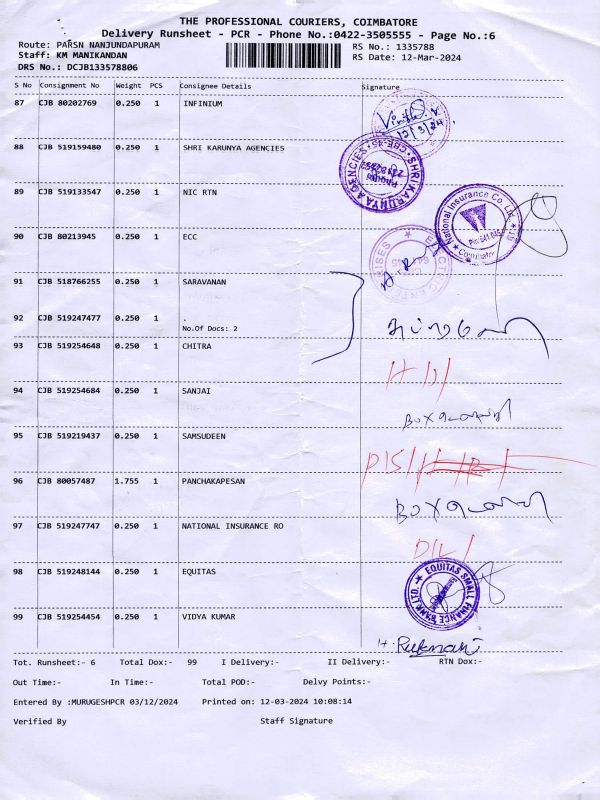 THE PROFESSIONAL COURIERS, COIMBATORE
Delivery Runsheet - PCR - Phone No.:0422-3505555 - Page No.:6
Route: PARSN NANJUNDAPURAM
RS No.: 1335788
Staff: KM MANIKANDAN
RS Date: 12-Mar-2024
DRS No.: DCJB133578806
S No Consignment No Weight PCS Consignee Details Signature
87 CJB 80202769 0.250 1 INFINIUM
12/3/24
88 CJB 519159480 0.250 1 SHRI KARUNYA AGENCIES
SHRI KARUNYA AGENCIES
89 CJB 519133547 0.250 1 NIC RTN
National Insurance Co. Ltd.
Pin 641 045
Coimbatore
90 CJB 80213945 0.250 1 ECC
91 CJB 518766255 0.250 1 SARAVANAN
92 CJB 519247477 0.250 1 .
No.Of Docs: 2
93 CJB 519254648 0.250 1 CHITRA
94 CJB 519254684 0.250 1 SANJAI
95 CJB 519219437 0.250 1 SAMSUDEEN
96 CJB 80057487 1.755 1 PANCHAKAPESAN
97 CJB 519247747 0.250 1 NATIONAL INSURANCE RO
98 CJB 519248144 0.250 1 EQUITAS
EQUITAS SMALL FINANCE BANK LTD.
99 CJB 519254454 0.250 1 VIDYA KUMAR
H. Rukmani
Tot. Runsheet:- 6 Total Dox:- 99 I Delivery:- II Delivery:- RTN Dox:-
Out Time:- In Time:- Total POD:- Delvy Points:-
Entered By :MURUGESHPCR 03/12/2024 Printed on: 12-03-2024 10:08:14
Verified By Staff Signature